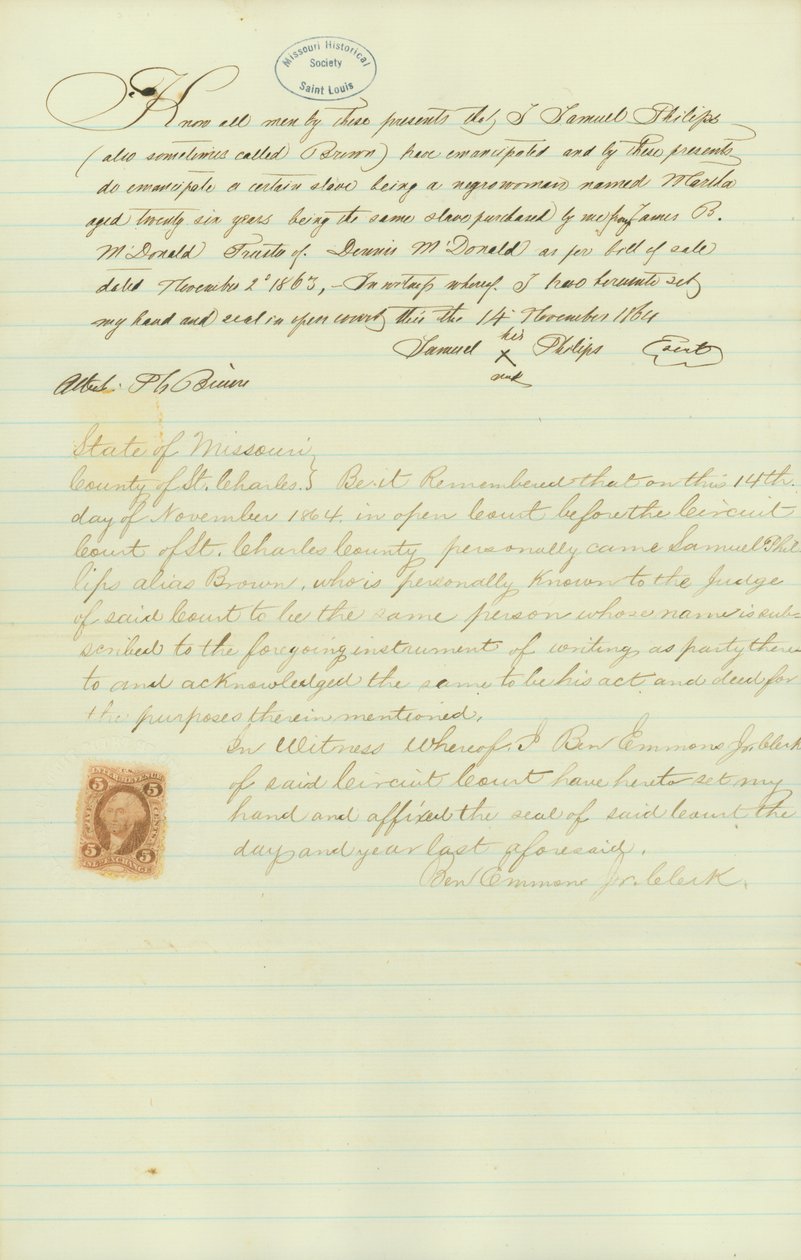 Missouri Historical
Society
Saint Louis
Know all men by these presents that I Samuel Philips
(also sometimes called Brown) have emancipated and by these presents
do emancipate a certain slave being a negro woman named Martha
aged twenty six years being the same slave purchased by me from James B.
McDonald Trustee of Dennis McDonald as per bill of sale
dated November 2d 1863, – In witness whereof I have hereunto set
my hand and seal in open court this the 14 November 1864
his
Samuel X Philips Seal
mark
Attest:
State of Missouri }
County of St. Charles. } Be it Remembered that on this 14th.
day of November 1864. in open Court before the Circuit
Court of St. Charles County personally came Samuel Phil
lips alias Brown, who is personally Known to the Judge
of said Court to be the same person whose name is sub=
scribed to the foregoing instrument of writing as party there
to and acknowledged the same to be his act and deed for
the purposes therein mentioned.
In Witness Whereof, I Ben Emmons Jr. Clerk
of said Circuit Court have hereto set my
hand and affixed the seal of said Court the
day and year last aforesaid.
Ben Emmons Jr. Clerk.
U.S. INTER. REVENUE
5 5
FIVE CENTS
5 5
INL. EXCHANGE